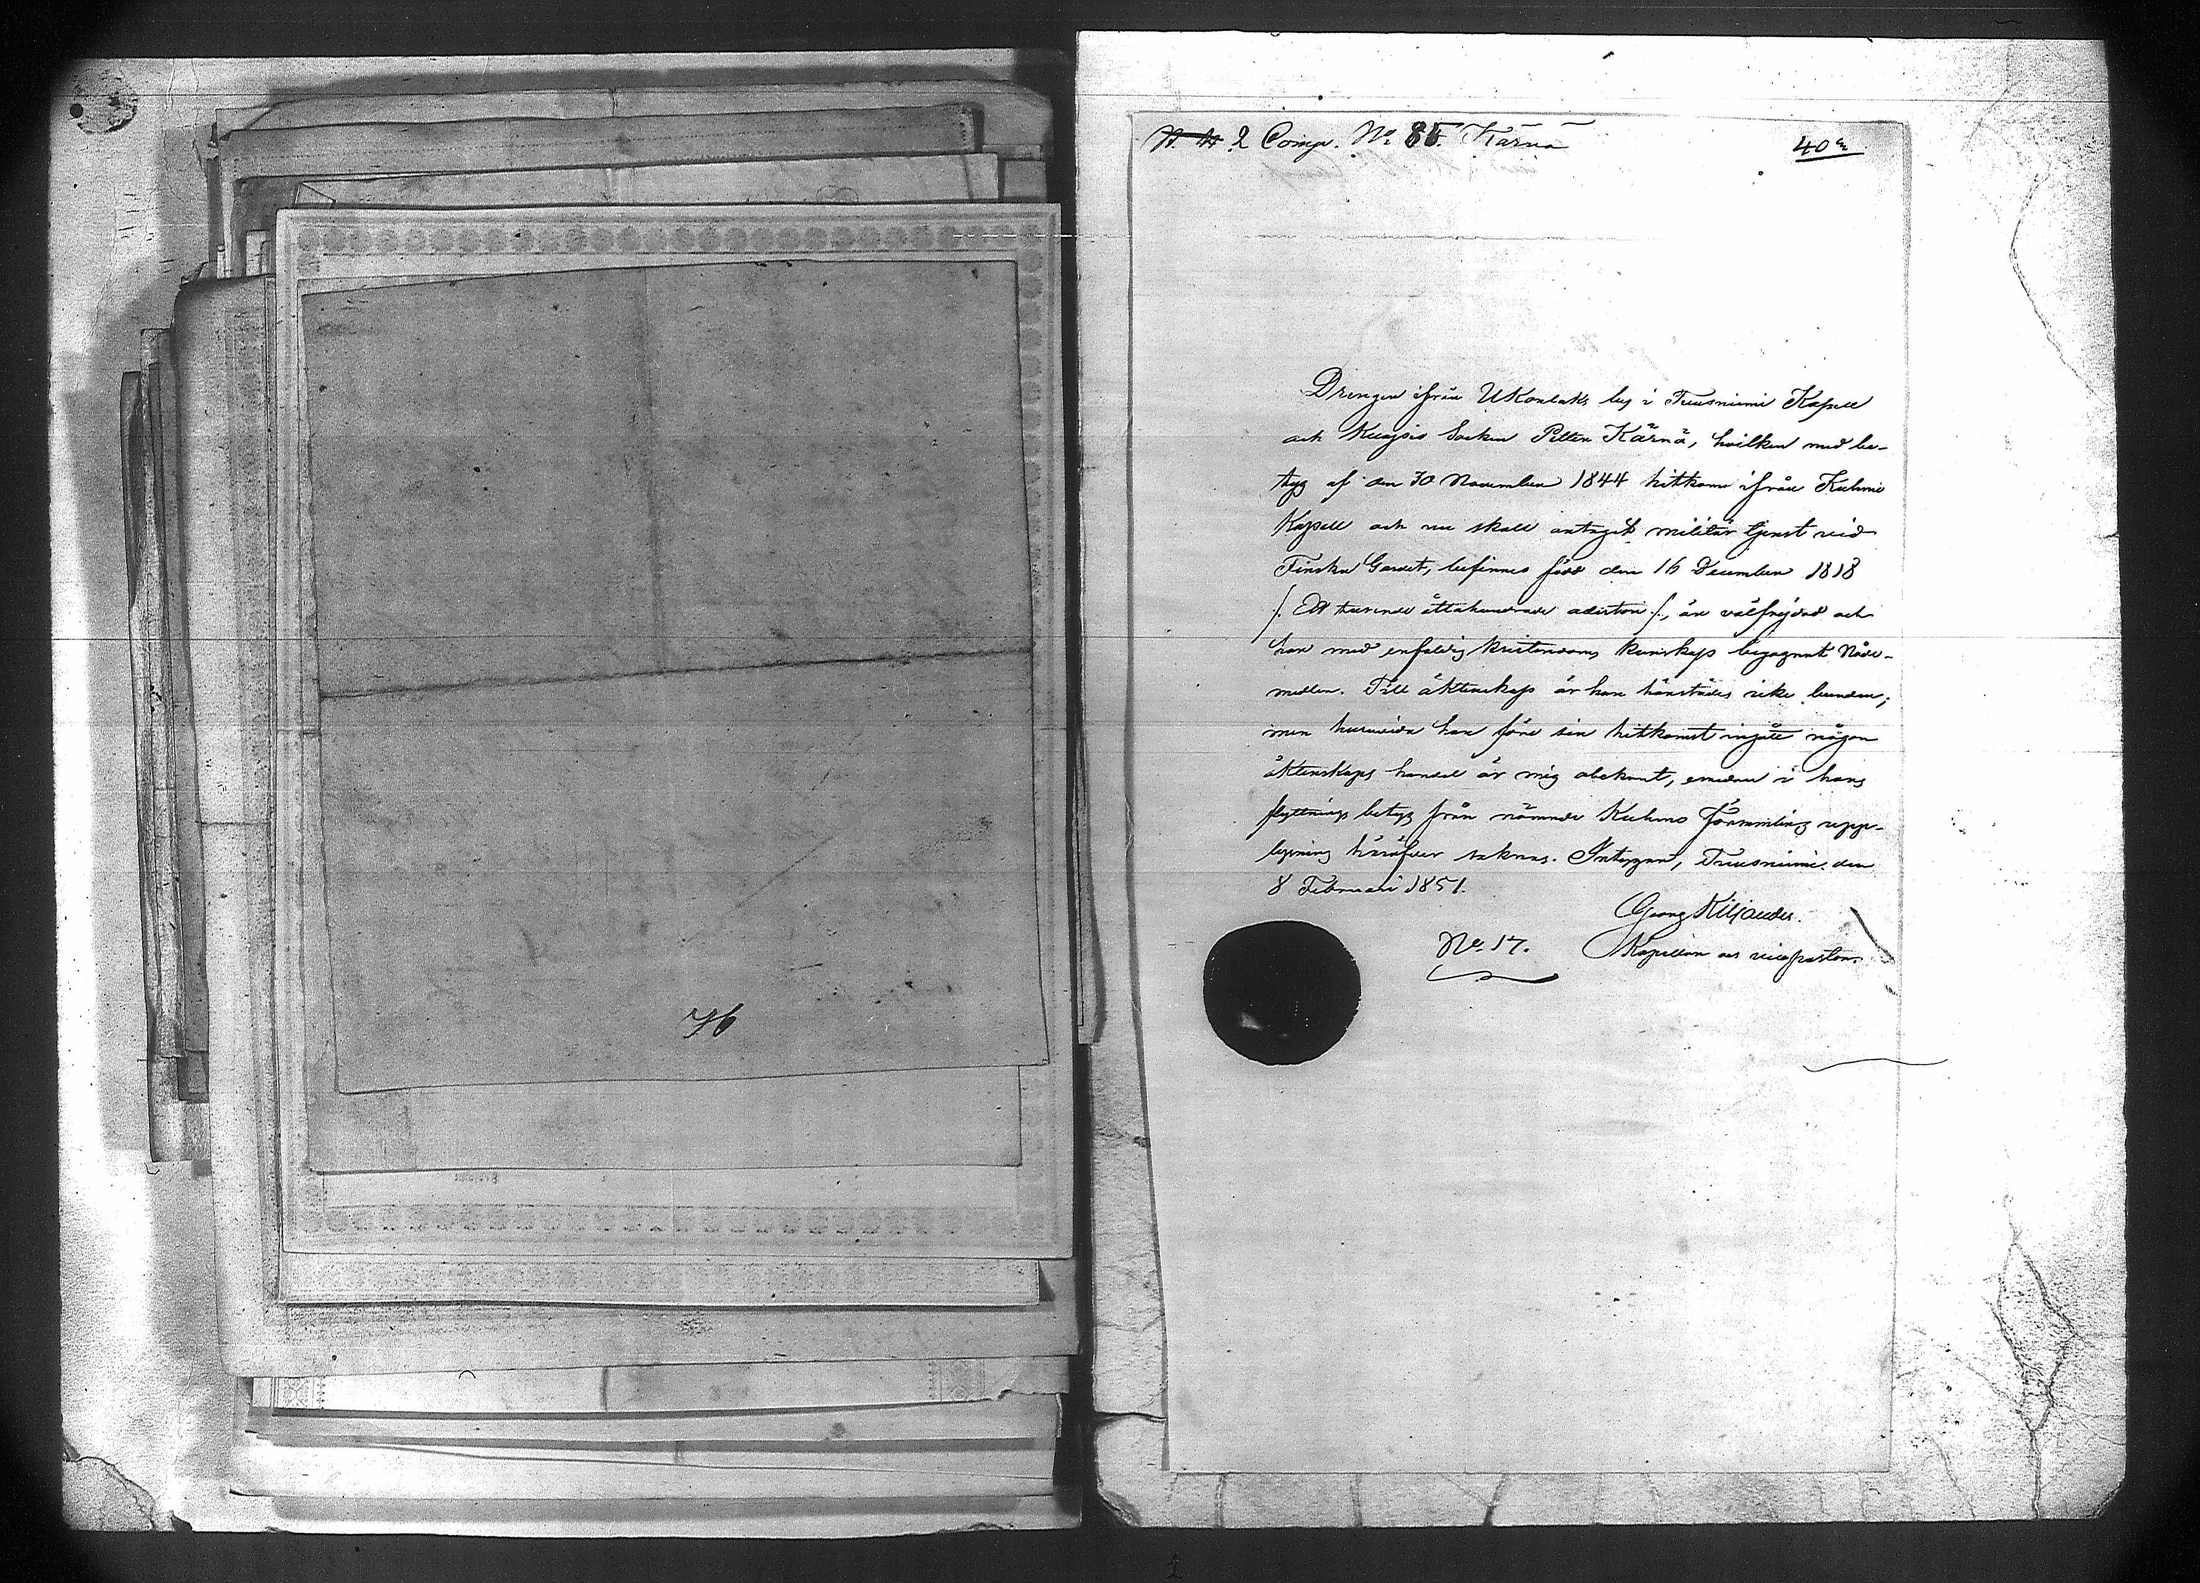 2 Comp. No 85. Kärnä
40
Drengen ifrån Ukonlaks by i Tuusniemi Kapell
och Kuopio Socken Petter Kärnä, hvilken med be-
tyg af den 30 November 1844 hitkom ifrån Kuhmo
Kapell och nu skall antagit militär tjenst vid
Finska Gardet, befinnes född den 16 December 1818
/: Ett tusende åttahundrade aderton :/, är välfrejdad och
har med enfaldig kristendoms kunskap begagnat Nåde-
medlen. Till äktenskap är han härstädes icke bunden;
men huruvida han före sin hitkomst ingått någon
äktenskaps handel är mig obekant, emedan i hans
flyttnings betyg från nämnde Kuhmo församling upp-
lysning häröfver saknas. Intygar, Tuusniemi den
8 Februari 1851.
Georg Kiljander.
No 17. Kapellan och vicepastor.
76